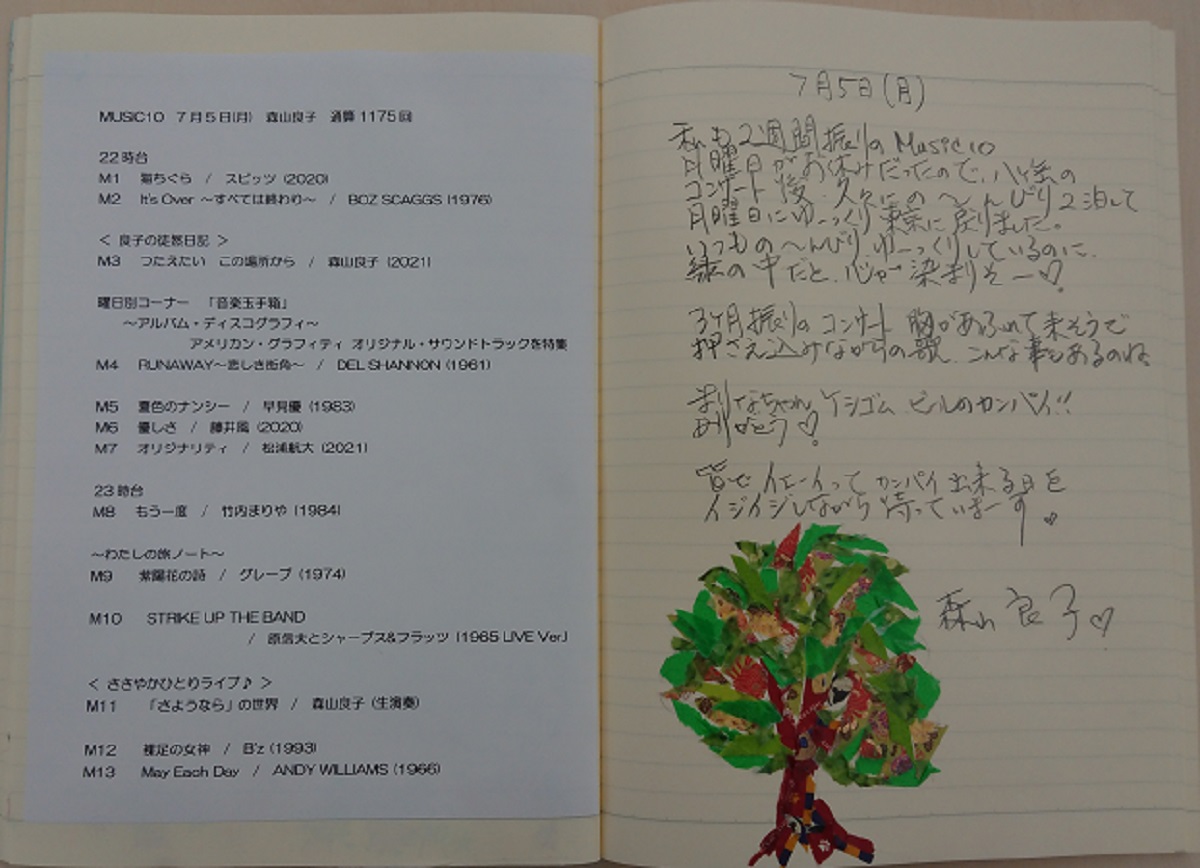 MUSIC10 7月5日(月) 森山良子 通算1175回
22時台
M1 猫ちぐら / スピッツ (2020)
M2 It's Over ～すべては終わり～ / BOZ SCAGGS (1976)
< 良子の徒然日記 >
M3 つたえたい この場所から / 森山良子 (2021)
曜日別コーナー 「音楽玉手箱」
～アルバム・ディスコグラフィ～
アメリカン・グラフィティ オリジナル・サウンドトラックを特集
M4 RUNAWAY～悲しき街角～ / DEL SHANNON (1961)
M5 夏色のナンシー / 早見優 (1983)
M6 優しさ / 藤井風 (2020)
M7 オリジナリティ / 松浦航大 (2021)
23時台
M8 もう一度 / 竹内まりや (1984)
～わたしの旅ノート～
M9 紫陽花の詩 / グレープ (1974)
M10 STRIKE UP THE BAND
/ 原信夫とシャープス&フラッツ [1965 LIVE Ver.]
< ささやかひとりライブ♪ >
M11 「さようなら」の世界 / 森山良子 (生演奏)
M12 裸足の女神 / B'z (1993)
M13 May Each Day / ANDY WILLIAMS (1966)
7月5日(月)
私も2週間振りの Music10
月曜日がお休みだったので、八ヶ岳の
コンサート後、久々にのーんびり2泊して
月曜日にゆーっくり東京に戻りました。
いつものーんびり、ゆーっくりしているのに、
緑の中だと、心が 染まりそー♡
3ヶ月振りのコンサート 胸があふれて来そうで
押さえ込みながらの歌、こんな事もあるのね。
まりなちゃん ケシゴム ビルのカンパイ!!
ありがとう♡
皆で イエーイって カンパイ出来る日を
イジイジしながら 待っていまーす♡
森山良子♡